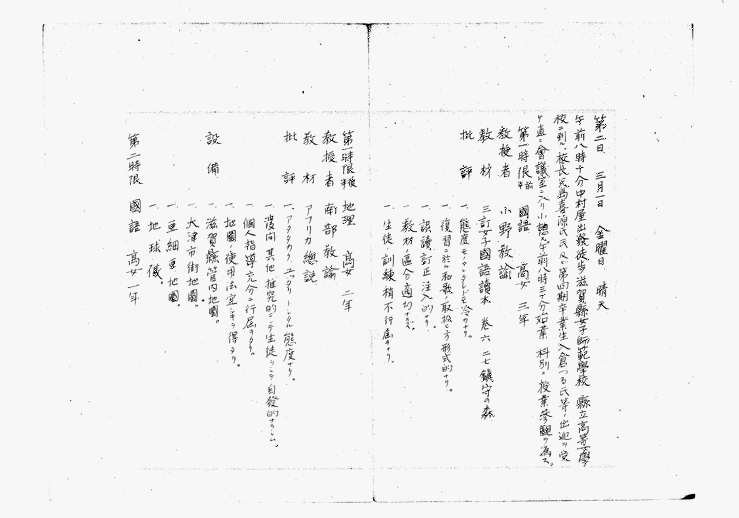 第二日 三月一日 金曜日 晴天
午前八時十分中村屋出発徒歩滋賀縣女子師範學校 縣立高等女學
校ニ到ル、校長 島喜源氏 及ビ第四期卒業生入倉つる氏等ノ出迎ヲ受
ケ直ニ會議室ニ入リ小憩 午前八時三十分始業 科別ニ授業參觀ヲ為ス
第一時限 半前 國語 高女 三年
教授者 小野教諭
教材 三訂女子國語讀本 卷六 二七 鎮守の森
批評 一、態度
一、復習ニ於ケル 取扱 形式的ナリ。
一、誤讀訂正注入的ナリ。
一、教材ノ區分適切ナラズ。
一、生徒ノ訓練稍不行届ナリ。
第一時限 半後 地理 高女 二年
教授者 南部教諭
教材 アフリカ總説
批評 一、アタタカク ユッタリ トシタル態度ナリ。
一、發問其他推究的ニシテ生徒ヲシテ自發的ナラシム。
一、個人指導充分ニ行届キタリ。
一、地圖ノ使用法宜シキヲ得タリ。
設備 一、滋賀縣管内地圖。
一、大津市街地圖。
一、亜細亜地圖。
一、地球儀。
第二時限 國語 高女 一年